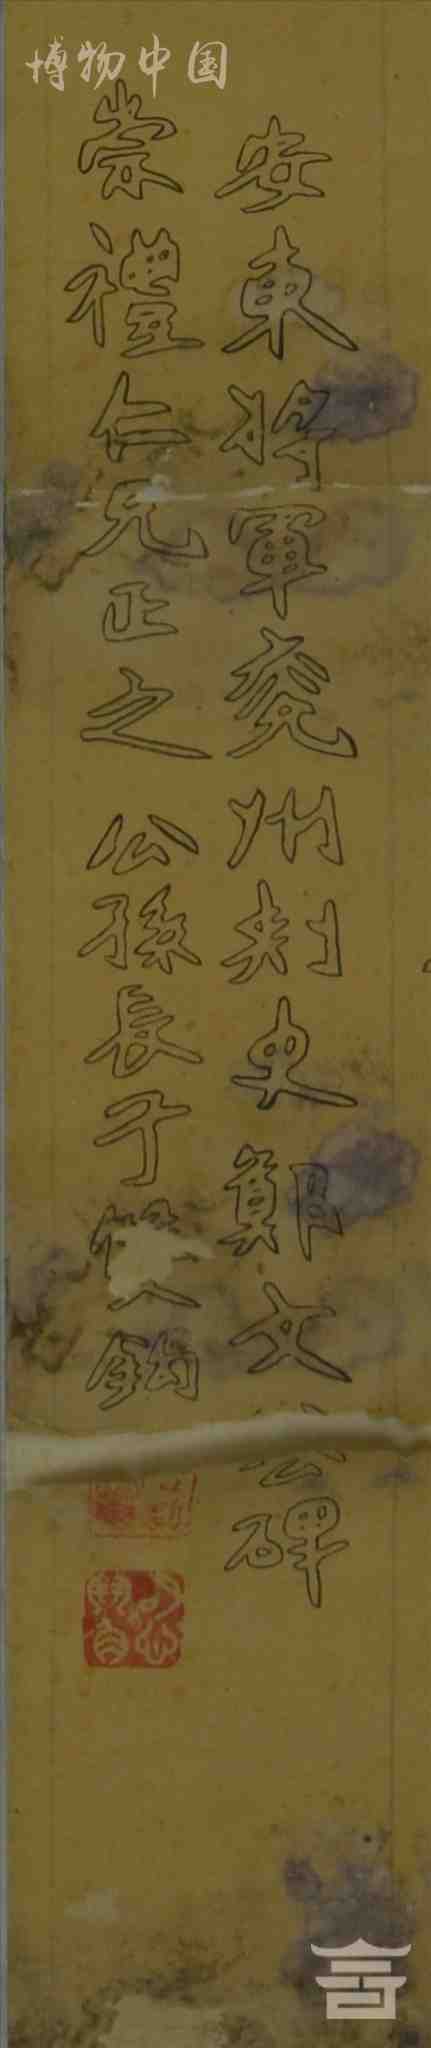 博物中国
安東將軍兗州刺史鄭文公碑
崇禮仁兄正之 公孫長子雙鈎